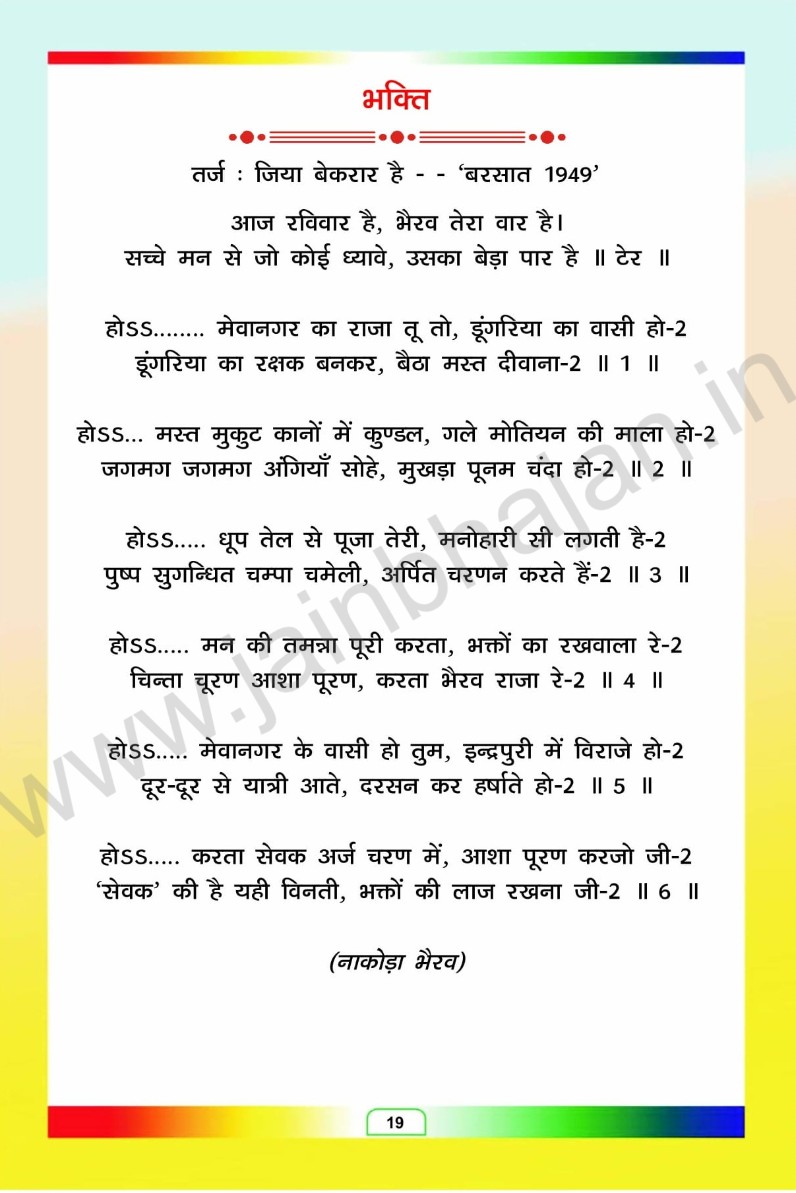 भक्ति
तर्ज : जिया बेकरार है - - ‘बरसात 1949’
आज रविवार है, भैरव तेरा वार है।
सच्चे मन से जो कोई ध्यावे, उसका बेड़ा पार है ॥ टेर ॥
होऽऽ........ मेवानगर का राजा तू तो, डूंगरिया का वासी हो-2
डूंगरिया का रक्षक बनकर, बैठा मस्त दीवाना-2 ॥ 1 ॥
होऽऽ... मस्त मुकुट कानों में कुण्डल, गले मोतियन की माला हो-2
जगमग जगमग अंगियाँ सोहे, मुखड़ा पूनम चंदा हो-2 ॥ 2 ॥
होऽऽ..... धूप तेल से पूजा तेरी, मनोहारी सी लगती है-2
पुष्प सुगन्धित चम्पा चमेली, अर्पित चरणन करते हैं-2 ॥ 3 ॥
होऽऽ..... मन की तमन्ना पूरी करता, भक्तों का रखवाला रे-2
चिन्ता चूरण आशा पूरण, करता भैरव राजा रे-2 ॥ 4 ॥
होऽऽ..... मेवानगर के वासी हो तुम, इन्द्रपुरी में विराजे हो-2
दूर-दूर से यात्री आते, दरसन कर हर्षाते हो-2 ॥ 5 ॥
होऽऽ..... करता सेवक अर्ज चरण में, आशा पूरण करजो जी-2
‘सेवक’ की है यही विनती, भक्तों की लाज रखना जी-2 ॥ 6 ॥
(नाकोड़ा भैरव)
19
www.jainbhajan.in